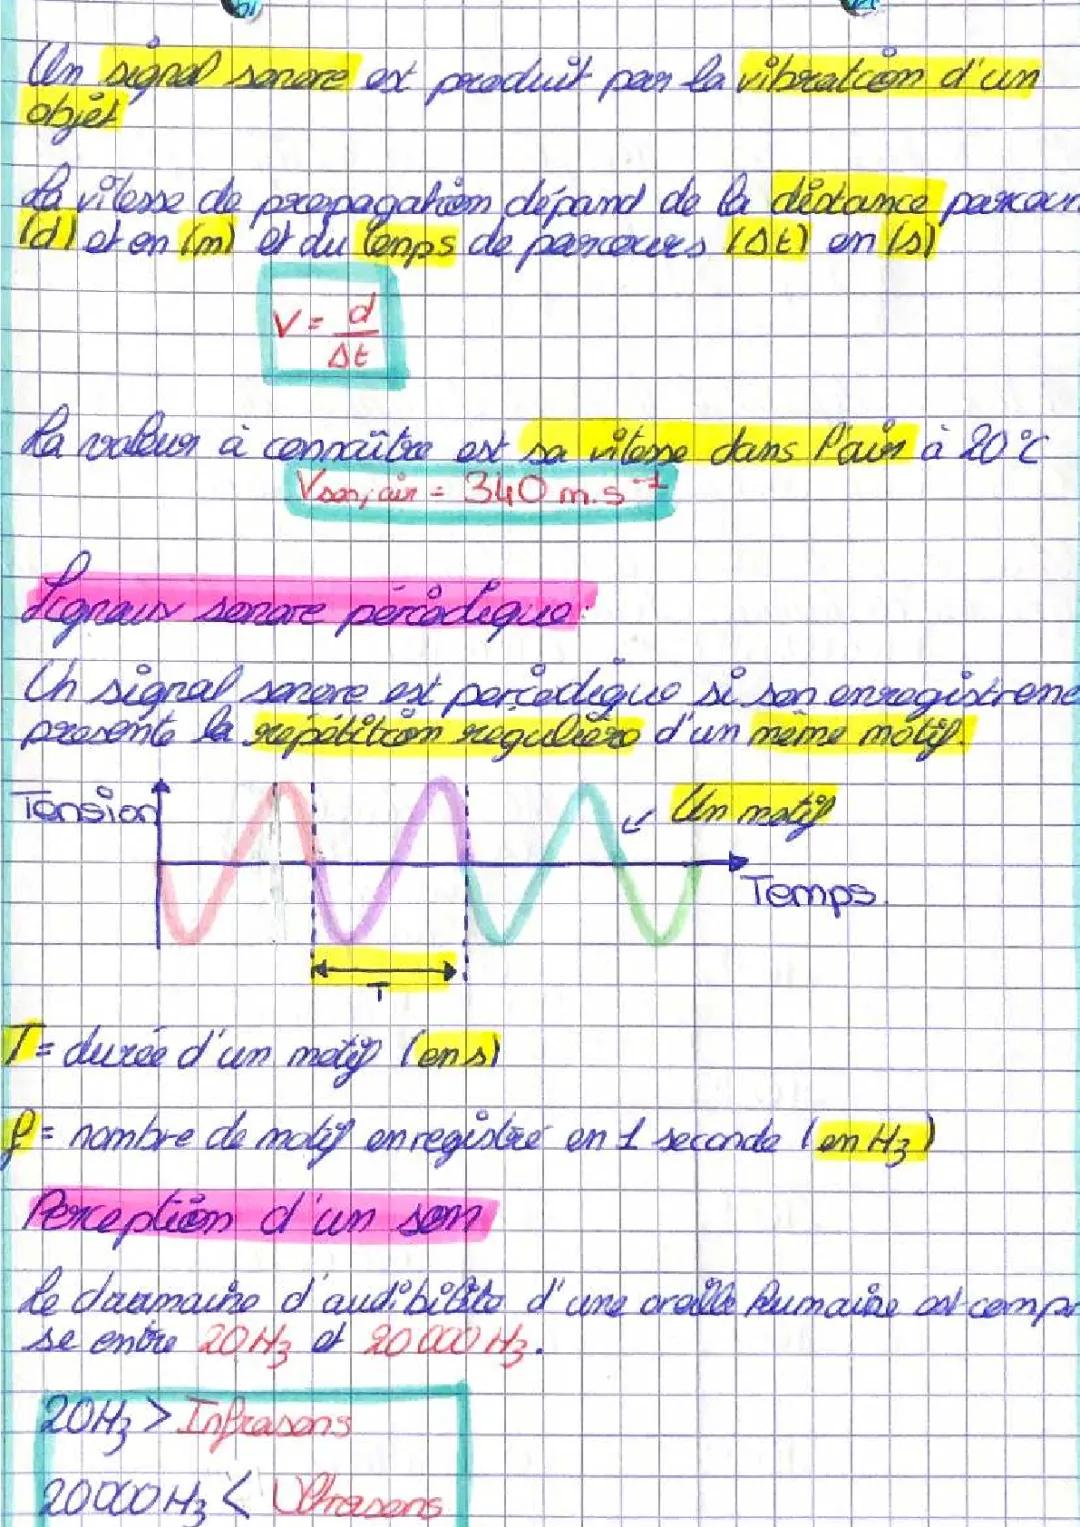 Un signal sonore est produit par la vibration d'un
objet
La vitesse de propagation dépand de la distance parcour
(d) et en (m) et du temps de parcours (Δt) en (s)
V = d
Δt
La valeur à connaître est sa vitesse dans l'air à 20°C
Vson, air = 340 m.s⁻¹
Signaux sonore périodique:
Un signal sonore est periodique si son enregistreme
presente la répétition regulière d'un même motif.
Tension
Un motif
Temps
T
T = durée d'un motif (en s)
f = nombre de motif enregistré en 1 seconde (en Hz)
Perception d'un son
Le daomaine d'audibilite d'une oreille humaine est compr
se entre 20Hz et 20 000 Hz.
20Hz > Infrasons
20000Hz < Ultrasons